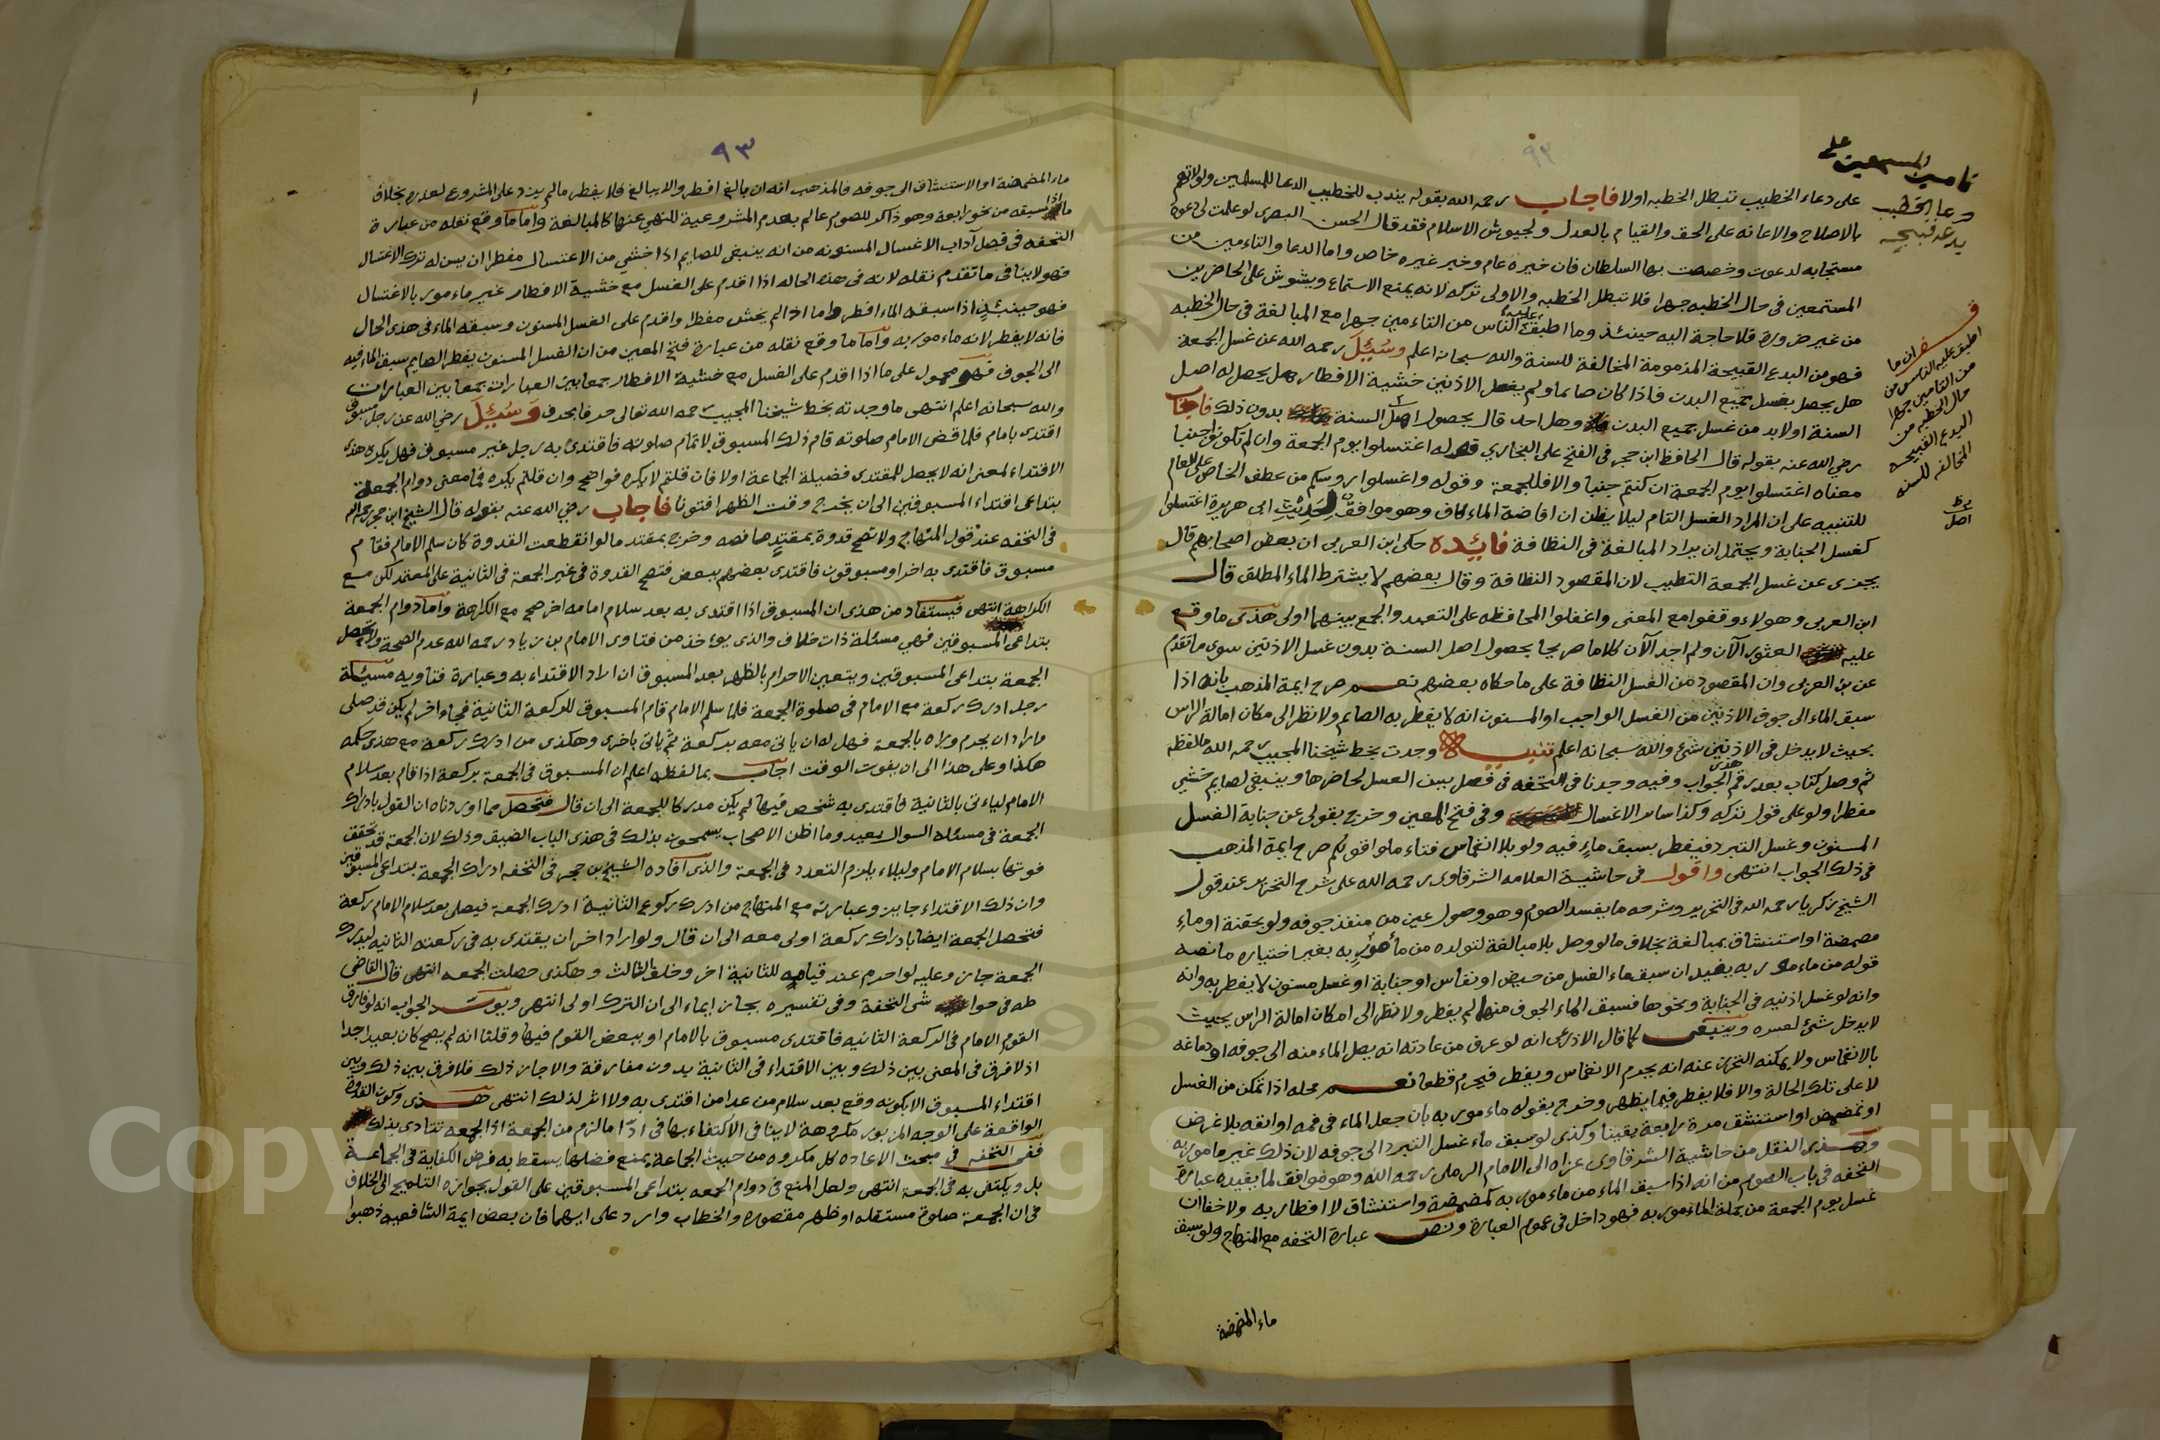 ٩٢
على دعاء الخطيب تبطل الخطبه اولا فاجاب رحمه الله بقوله يندب للخطيب الدعا للمسلمين وولاتهم
بالاصلاح والاعانه على الحق والقيام بالعدل ولجيوش الاسلام فقد قال الحسن البصرى لو علمت لى دعوة
مستجابه لدعوت وخصصت بها السلطان فان خيره عام وخير غيره خاص واما الدعا والتاءمين من
المستمعين فى حال الخطبه جهرا فلا تبطل الخطبه والاولى تركه لانه يمنع الاستماع ويشوش على الحاضرين
من غير ضرورة فلا حاجة اليه حينئذ وما اطبقت عليه الناس من التاءمين جهرا مع المبالغة فى حال الخطبه
فهو من البدع القبيحة المذمومة المخالفة للسنة والله سبحانه اعلم وسُئِلَ رحمه الله عن غسل الجمعة
هل يحصل بغسل جميع البدن فاذا كان صايما ولم يغسل الاذنين خشية الافطار هل يحصل له اصل
السنة اولا بد من غسل جميع البدن وهل احد قال بحصول اصل السنة بدون ذلك فاجاب
رضي الله عنه بقوله قال الحافظ ابن حجر فى الفتح على البخاري قوله اغتسلوا يوم الجمعة وان لم تكونوا جنبا
معناه اغتسلوا يوم الجمعة ان كنتم جنبا والا فللجمعة وقوله واغسلوا رووسكم من عطف الخاص على العام
للتنبيه على ان المراد الغسل التام ليلا يظن ان افاضة الماء كاف وهو موافق لحَدِيْثِ ابى هريرة اغتسلوا
كغسل الجنابة ويحتمل ان يراد المبالغة فى النظافة فايده حكى ابن العربى ان بعض اصحابهم قال
يجزى عن غسل الجمعة التطيب لان المقصود النظافة وقال بعضهم لا يشترط الماء المطلق قال
ابن العربى وهولاء وقفوا مع المعنى واغفلوا المحافظه على التعبد والجمع بينهما اولى هذى ما وقع
عليه العثور الآن ولم اجد الآن كلاما صريحا بحصول اصل السنة بدون غسل الاذنين سوى ما تقدم
عن بن العربى وان المقصود من الغسل النظافة على ما حكاه بعضهم نعم صرح ايمة المذهب بانه اذا
سبق الماء الى جوف الاذنين من الغسل الواجب او المسنون انه لا يفطر به الصايم ولا نظر الى مكان امالة الراس
بحيث لا يدخل فى الاذنين شئ والله سبحانه اعلم تنبيه وجدت بخط شيخنا المجيب رحمه الله مالفظه
ثم وصل كتاب بعد رقم الجواب هذى وفيه وجدنا فى التحفه فى فصل يسن الغسل لحاضرها وينبغى لصايم خشي
مفطرا ولو على قول تركه وكذا ساير الاغسال وفى فتح المعين وخرج بقولى عن جنابة الغسل
المسنون وغسل التبرد فيفطر بسبق ماءٍ فيه ولو بلا انغماس فتاءملوا قولكم صرح ايمة المذهب
فى ذلك الجواب انتهى واقول فى حاشية العلامه الشرقاوى رحمه الله على شرح التحرير عند قول
الشيخ زكريا رحمه الله فى التحرير وشرحه ما يفسد الصوم وهو وصول عين من منفذ جوفه ولو بحقنة او ماءٍ
مضمضة او استنشاق بمبالغة بخلاف مالو وصل بلا مبالغة لتولده من ماءمورٍ به بغير اختياره مانصه
قوله من ماءمور به يفيد ان سبق ماء الغسل من حيض او نفاس او جنابة او غسل مسنون لا يفطر به وانه
وانه لو غسل اذنيه فى الجنابة ونحوها فسبق الماء الجوف منهما لم يفطر ولا نظر الى امكان امالة الراس بحيث
لا يدخل شئ لعسره وينبغى كما قال الاذرعى انه لو عرف من عادته انه يصل الماء منه الى جوفه او دماغه
بالانغماس ولا يمكنه التحرز عنه انه يحرم الانغماس ويفطر فيحرم قطعا نعم محله اذا تمكن من الغسل
لا على تلك الحالة والا فلا يفطر فيما يظهر وخرج بقوله ماءمور به بان جعل الماء فى فمه او انفه بلا غرض
او تمضمض او استنشق مرة رابعة يقينا وكذى لو سبق ماء غسل التبرد الى جوفه لان ذلك غير مامور به
وهذى النقل من حاشية الشرقاوى عزاه الى الامام الرملى رحمه الله وهو موافق لما يفيده عبارة
التحفه فى باب الصوم من انه اذا سبق الماء من ماءمور به كمضمضة واستنشاق لا افطار به ولا خفا ان
غسل يوم الجمعة من جملة الماءمور به فهو داخل فى عموم العبارة ونصت عبارة التحفه مع المنهاج ولو سبق
ماء المضمضة
تامين المستمعين على
دعا الخطيب
بدعه قبيحه
قف ان ما
اطبق عليه الناس من
من التامين جهرا
حال الخطبه من
البدع القبيحه
المخالفه للسنه
اصل
٩٣
ماء المضمضة او الاستنشاق الى جوفه فالمذهب انه ان بالغ افطر والا يبالغ فلا يفطر مالم يزد على المشروع لعذره بخلاف
ما اذا سبقه من نحو رابعة وهو ذاكر للصوم عالم بعدم المشروعية للنهي عنها كالمبالغة واما ما وقع نقله من عبارة
التحفه فى فصل آداب الاغسال المسنونه من انه ينبغى للصايم اذا خشي من الاغتسال مفطرا ان يسن له ترك الاغتسال
فهو لا ينافى ما تقدم نقله لانه فى هذه الحاله اذا اقدم على الغسل مع خشية الافطار غير ماءمور بالاغتسال
فهو حينئذٍ اذا سبقه الماء افطر واما اذا لم يخش مفطرا واقدم على الغسل المسنون وسبقه الماء فى هذى الحال
فانه لا يفطر لانه ماءمور به واما ما وقع نقله من عبارة فتح المعين من ان الغسل المسنون يفطر الصايم سبق الماء فيه
الى الجوف فهو محمول على ما اذا اقدم على الغسل مع خشية الافطار جمعا بين العبارات جمعا بين العبارات
والله سبحانه اعلم انتهى ما وجدته بخط شيخنا المجيب رحمه الله تعالى حرفا بحرف وَسُئِلَ رضي الله عن رجل مسبوق
اقتدى بامام فلما قضى الامام صلوته قام ذلك المسبوق لاتمام صلوته فاقتدى به رجل غير مسبوق فهل يكره هذى
الاقتداء لمعنى انه لا يحصل للمقتدى فضيلة الجماعة اولا فان قلتم لا يكره فواضح وان قلتم يكره فما معنى دوام الجمعة
بتداعى اقتداء المسبوقين الى ان يخرج وقت الظهر افتونا فاجاب رضي الله عنه بقوله قال الشيخ ابن حجر رحمه الله
فى التحفه عند قول المنهاج ولا تصح قدوة بمقتدٍ ما نصه وخرج بمقتد ما لو انقطعت القدوة كان سلم الامام فقام
مسبوق فاقتدى به اخر او مسبوقون فاقتدى بعضهم ببعض فتصح القدوة فى غير الجمعة فى الثانية على المعتمد لكن مع
الكراهة انتهى فيستفاد من هذى ان المسبوق اذا اقتدى به بعد سلام امامه اخر صح مع الكراهة واما دوام الجمعة
بتداعى المسبوقين فهي مسئلة ذات خلاف والذى يوءخذ من فتاوى الامام بن زياد رحمه الله عدم الصحة ولا تحصل
الجمعة بتداعى المسبوقين ويتعين الاحرام بالظهر بعد المسبوق ان اراد الاقتداء به وعبارة فتاويه مسئلة
رجل ادرك ركعة مع الامام فى صلوة الجمعة فلما سلم الامام قام المسبوق للركعة الثانية فجاء اخر لم يكن قد صلى
واراد ان يحرم وراه بالجمعة فهل له ان ياتى معه بركعة ثم ياتى باخرى وهكذى من ادرك ركعة مع هذى حكمه
هكذا وعلى هذا الى ان يفوت الوقت اجاب بما لفظه اعلم ان المسبوق فى الجمعة بركعة اذا قام بعد سلام
الامام لياءتى بالثانية فاقتدى به شخص فيها لم يكن مدركا للجمعة الى ان قال فتحصل مما اوردناه ان القول بادراك
الجمعة فى مسئله السوال بعيد وما اظن الاصحاب يسمحون بذلك فى هذى الباب الضيق وذلك لان الجمعة قد تحقق
فوتها بسلام الامام وليلاء يلزم التعدد فى الجمعة والذى افاده الشيخ بن حجر فى التحفه ادراك الجمعة بتداعى المسبوقين
وان ذلك الاقتداء جايز وعبارته مع المنهاج من ادرك ركوع الثانية ادرك الجمعة فيصلى بعد سلام الامام ركعة
فتحصل الجمعة ايضا بادراك ركعة اولى معه الى ان قال ولو اراد اخر ان يقتدى به فى ركعته الثانيه ليدرك
الجمعة جاز وعليه لو احرم عند قيامه للثانية اخر وخلف الثالث وهكذى حصلت الجمعه انتهى قال القاضى
طه فى حواشى التحفة وفى تفسيره بجاز ايماء الى ان الترك اولى انتهى ويوت الجواب انه لو فارق
القوم الامام فى الركعة الثانيه فاقتدى مسبوق بالامام او ببعض القوم فيها وقلنا انه لم يصح كان بعيد اجدا
اذ لا فرق فى المعنى بين ذلك وبين الاقتداء فى الثانية بدون مفارقة والا جاز ذلك فلا فرق بين ذلك وبين
اقتداء المسبوق الا بكونه وقع بعد سلام من عدا من اقتدى به ولا اثر لذلك انتهى هذى وكون القدوة
الواقعة على الوجه المزبور مكروهة لا ينافى الاكتفاء بها فى اداء ما لزم من الجمعة اذ الجمعه تتادى بذلك
ففى التحفه فى مبحث الاعاده كل مكروه من حيث الجماعة يمنع فضلها يسقط به فرض الكفاية فى الجماعة
بل ويكتفى به فى الجمعة انتهى ولعل المنع فى دوام الجمعه بتداعى المسبوقين على القول بجوازه التلميح الى الخلاف
فى ان الجمعة صلوة مستقله او ظهر مقصوره والخطاب وارد على ايهما فان بعض ايمة الشافعيه ذهبوا
Copy King Saud University